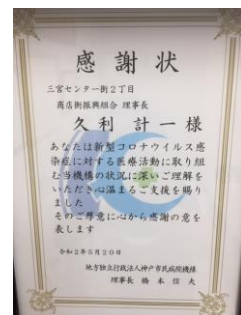 感謝状
三宮センター街2丁目
商店街振興組合 理事長
久利計一様
あなたは新型コロナウイルス感
染症に対する医療活動に取り組
む当機構の状況に深いご理解を
いただき心温まるご支援を賜り
ました
そのご厚意に心から感謝の意を
表します
令和2年5月20日
地方独立行政法人神戸市民病院機構
理事長 橋本信夫